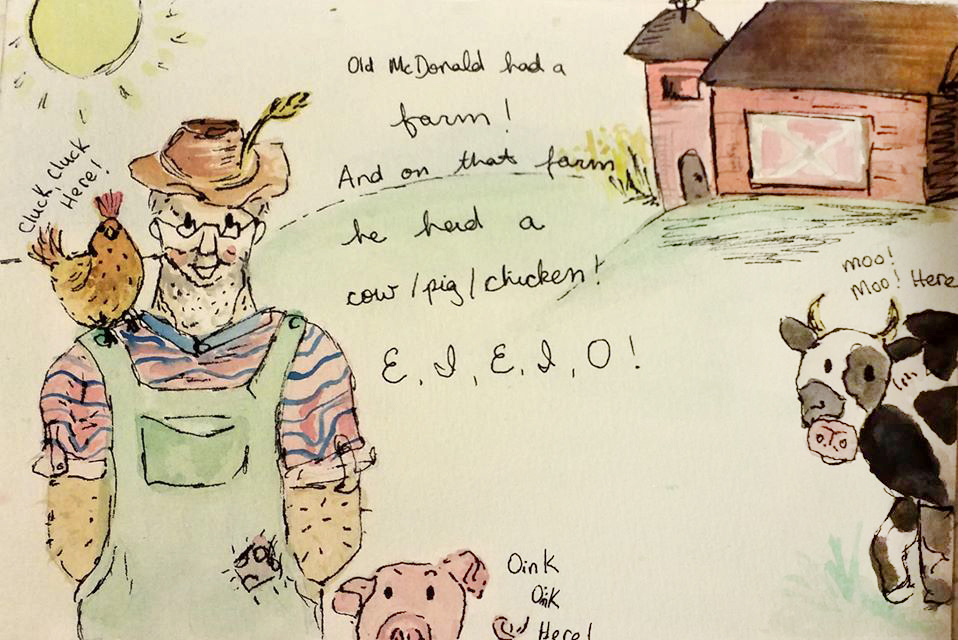 Old McDonald had a
farm!
And on that farm
he had a
cow/pig/chicken!
E, I, E, I, O!
Cluck, Cluck
Here!
moo!
Moo! Here
Oink
Oink
Here!